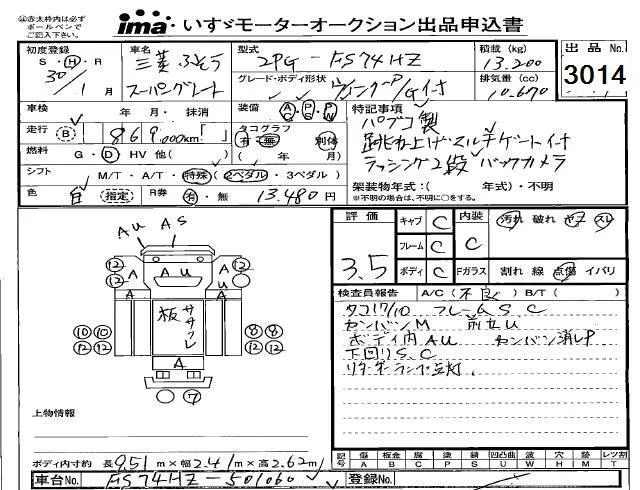 ㊟赤太枠内は必ず
ボールペンで
ご記入下さい。
ima いすゞモーターオークション出品申込書
初度登録 車名 型式 積載 (kg) 出品No.
S・H・R 三菱ふそう 2PG-FS74HZ 13,200 3014
30/1月 スーパーグレート グレード・ボディ形状 排気量 (cc)
ウィングP/Gイナ 10,670
車検 年 月・抹消 装備 AC・PS・PW 特記事項
パブコ製
走行 B 869,000km「 」 タコグラフ 有・無 別体
跳ね上げマルチゲートイナ
燃料 G・D・HV 他( ) ( 年 月)
ラッシング2段 バックカメラ
シフト M/T・A/T・特殊(2ペダル・3ペダル)
架装物年式:( 年式)・不明
色 白 指定 R券 有・無 13,480円
※不明の場合は、不明に○をする。
評価 キャブ C 内装 汚れ 破れ ヤケ スレ
3.5 フレーム C C
ボディ C Fガラス 割れ 線 点傷 イバリ
AU AS
12 12
A AU A
A A
板 ササクレ
10 10 8 8
12 12 12 12
A
7
検査員報告 A/C(不良) B/T( )
タコ17/10 フレームS、C
センバンM 前セU
ボディ内AU センバン消しP
下回りS、C
リターダーランプ点灯
上物情報
記号 傷 板金 腐 塗 錆 凹 凸凹曲 波 穴 跡 レツ割
A B C P S U W H M T
ボディ内寸約 長9.51m×幅2.41m×高2.62m
車台No. FS74HZ-501060 登録No.